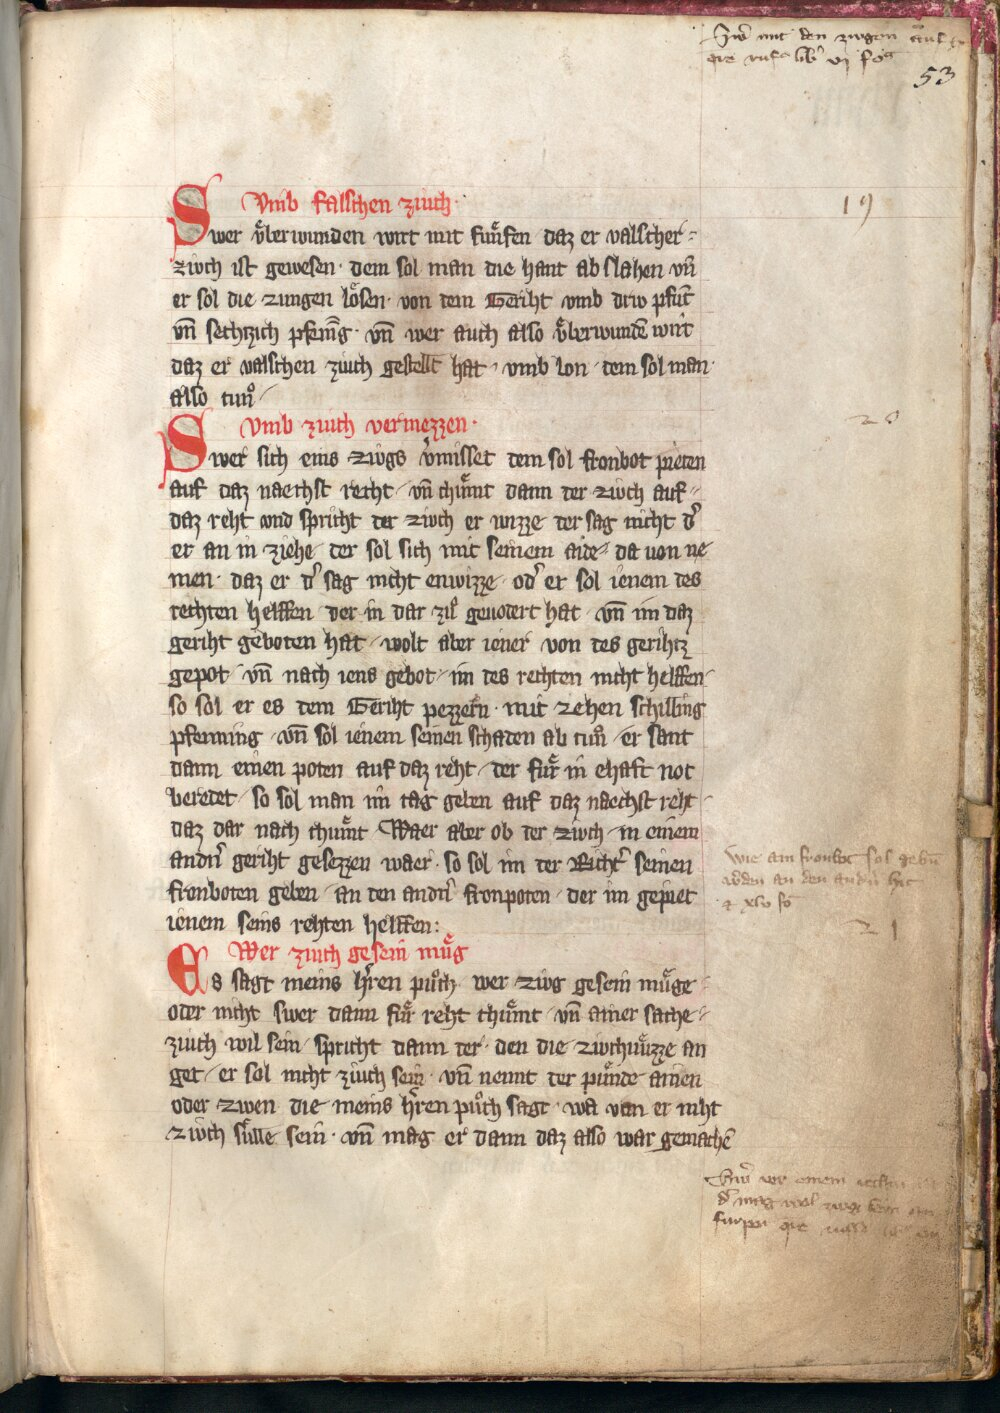 53
19
Vmb falschen ziuch
Swer v̂berwunden wirt mit fuͤnfen daz er valscher
ziuch ist gewesen · dem sol man die hant ab slahen vn̄
er sol die zungen loͤsen · von dem Geriht vmb driv pfūt
vn̄ sechtzich pfenīg · vn̄ wer auch also v̂berwundē wirt
daz er valschen ziuch gestellt hat · vmb lon · dem sol man
also tuͦn
20
Vmb ziuch vermezzen ·
Swer sich eins ziugs v̓misset dem sol fronbot pieten
auf daz naechst recht · vn̄ chuͤmt dann der ziuch auf
daz reht vnd spricht der ziuch er wizze der sag nicht d̓
er an in ziehe der sol sich mit seinem aide da von ne
men · daz er d̓ sag nicht enwizze · od̓ er sol ienem des
rechten helffen der in dar zuͦ geuodert hat · vn̄ im daz
geriht geboten hat · wolt aber iener von des gerihtz
gepot · vn̄ nach iens gebot · im des rechten nicht helffen
so sol er es dem Geriht pezzern · mit zehen schilling
pfenning · vn̄ sol ienem seinen schaden ab tuͦn · er sant
dann einen poten auf daz reht · der fuͤr in ehaft not
beredet · so sol man im tag geben auf daz naechst reht
daz dar nach chuͤmt Waer aber ob der ziuch in einem
andn̓ geriht gesezzen waer · so sol im der Richt̓ seinen
fronboten geben · an den andn̓ fronpoten · der im gepiet
ienem seins rehten helffen :
wie am fronbot sol gebn̄
w̓den an den andn̓
21
Wer ziuch gesein muͤg
Es sagt meins h̓ren puͦch wer ziug gesein muͤge
oder nicht swer dann fuͤr reht chuͤmt · vn̄ ainer sache
ziuch wil sein · spricht dann der · den die ziuchnuͤzze an
get · er sol nicht ziuch sein · vn̄ nennt der puͤnde ainen
oder zwen die meins h̓ren puͦch sagt · wa van er niht
ziuch suͤlle sein · vn̄ mag er dann daz also war gemachē